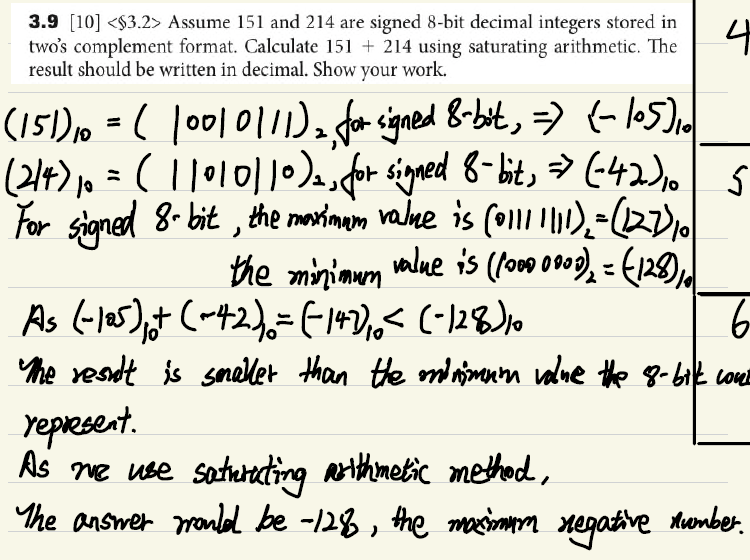 3.9 [10] <§3.2> Assume 151 and 214 are signed 8-bit decimal integers stored in
two's complement format. Calculate 151 + 214 using saturating arithmetic. The
result should be written in decimal. Show your work.
(151)₁₀ = ( 10010111)₂, for signed 8-bit, => (-105)₁₀
(214)₁₀ = ( 11010110)₂, for signed 8-bit, => (-42)₁₀
For signed 8-bit, the maximum value is (01111111)₂=(127)₁₀
the minimum value is (1000 0000)₂ = (-128)₁₀
As (-105)₁₀+ (-42)₁₀=(-147)₁₀< (-128)₁₀
The result is smaller than the minimum value the 8-bit coul
represent.
As we use saturating arithmetic method,
The answer would be -128, the maximum negative number.
4
5
6